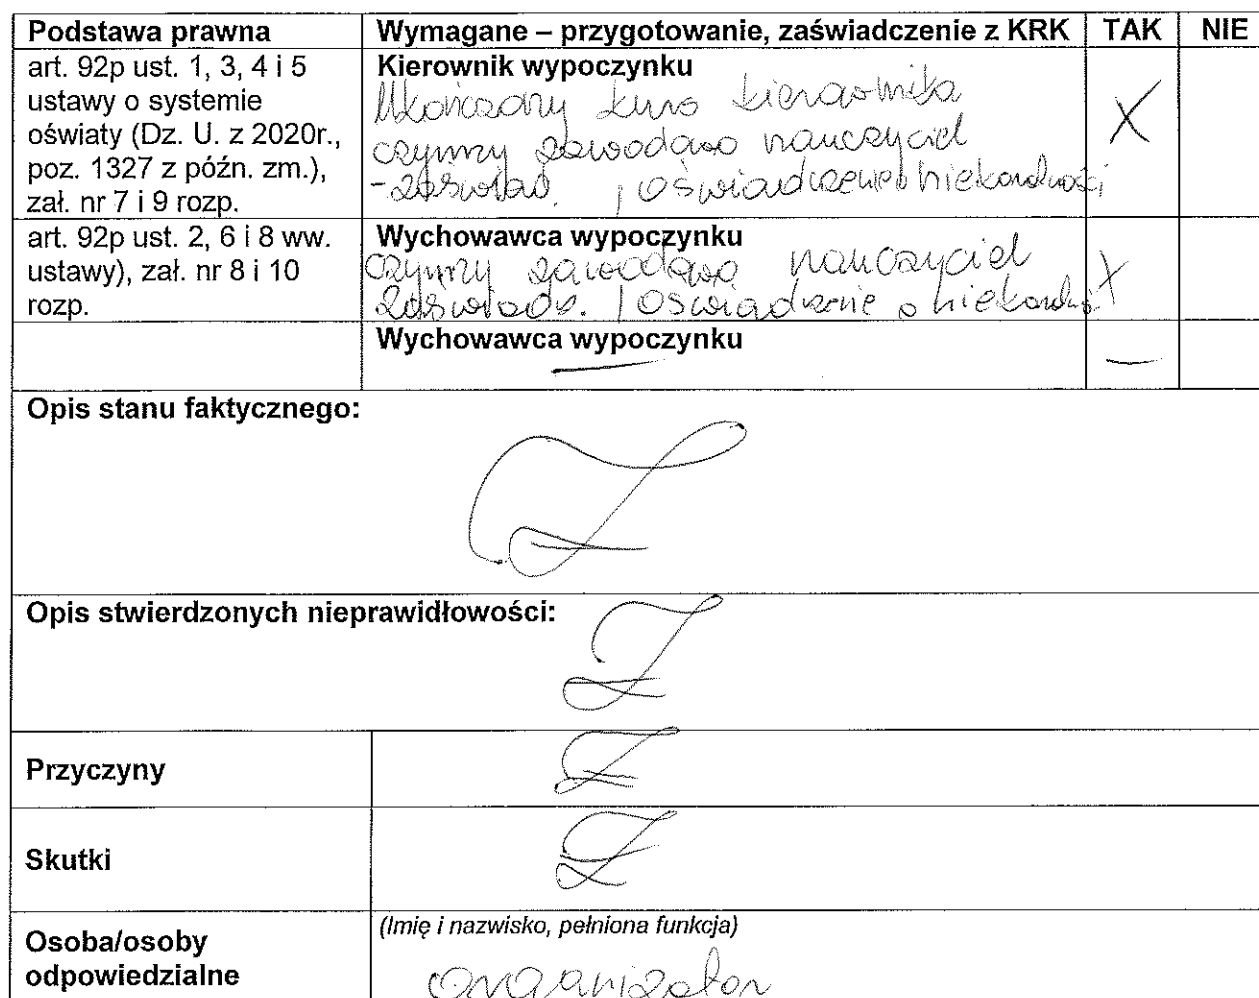 Podstawa prawna Wymagane – przygotowanie, zaświadczenie z KRK TAK NIE
art. 92p ust. 1, 3, 4 i 5
ustawy o systemie
oświaty (Dz. U. z 2020r.,
poz. 1327 z późn. zm.),
zał. nr 7 i 9 rozp.
Kierownik wypoczynku
Ukończony kurs kierownika
czynny zawodowo nauczyciel
-zaświad. , oświadczenie o niekaralności
X
art. 92p ust. 2, 6 i 8 ww.
ustawy), zał. nr 8 i 10
rozp.
Wychowawca wypoczynku
czynny zawodowo nauczyciel
zaświadz. , oświadczenie o niekaralnoś
X
Wychowawca wypoczynku
—
—
Opis stanu faktycznego:
Opis stwierdzonych nieprawidłowości:
Przyczyny
Skutki
Osoba/osoby
odpowiedzialne
(Imię i nazwisko, pełniona funkcja)
organizator